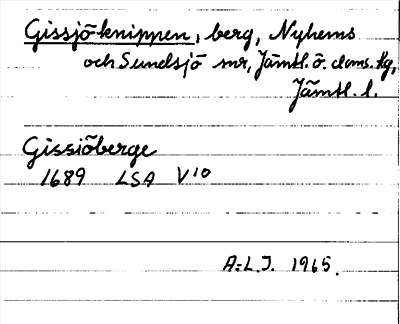 Gissjö-knippen, berg, Nyhems
och Sundsjö snr, Jämtl. ö. doms. fg,
Jämtl. l.
Gissiöberge
1689 LSA V10
A-L.J. 1965.